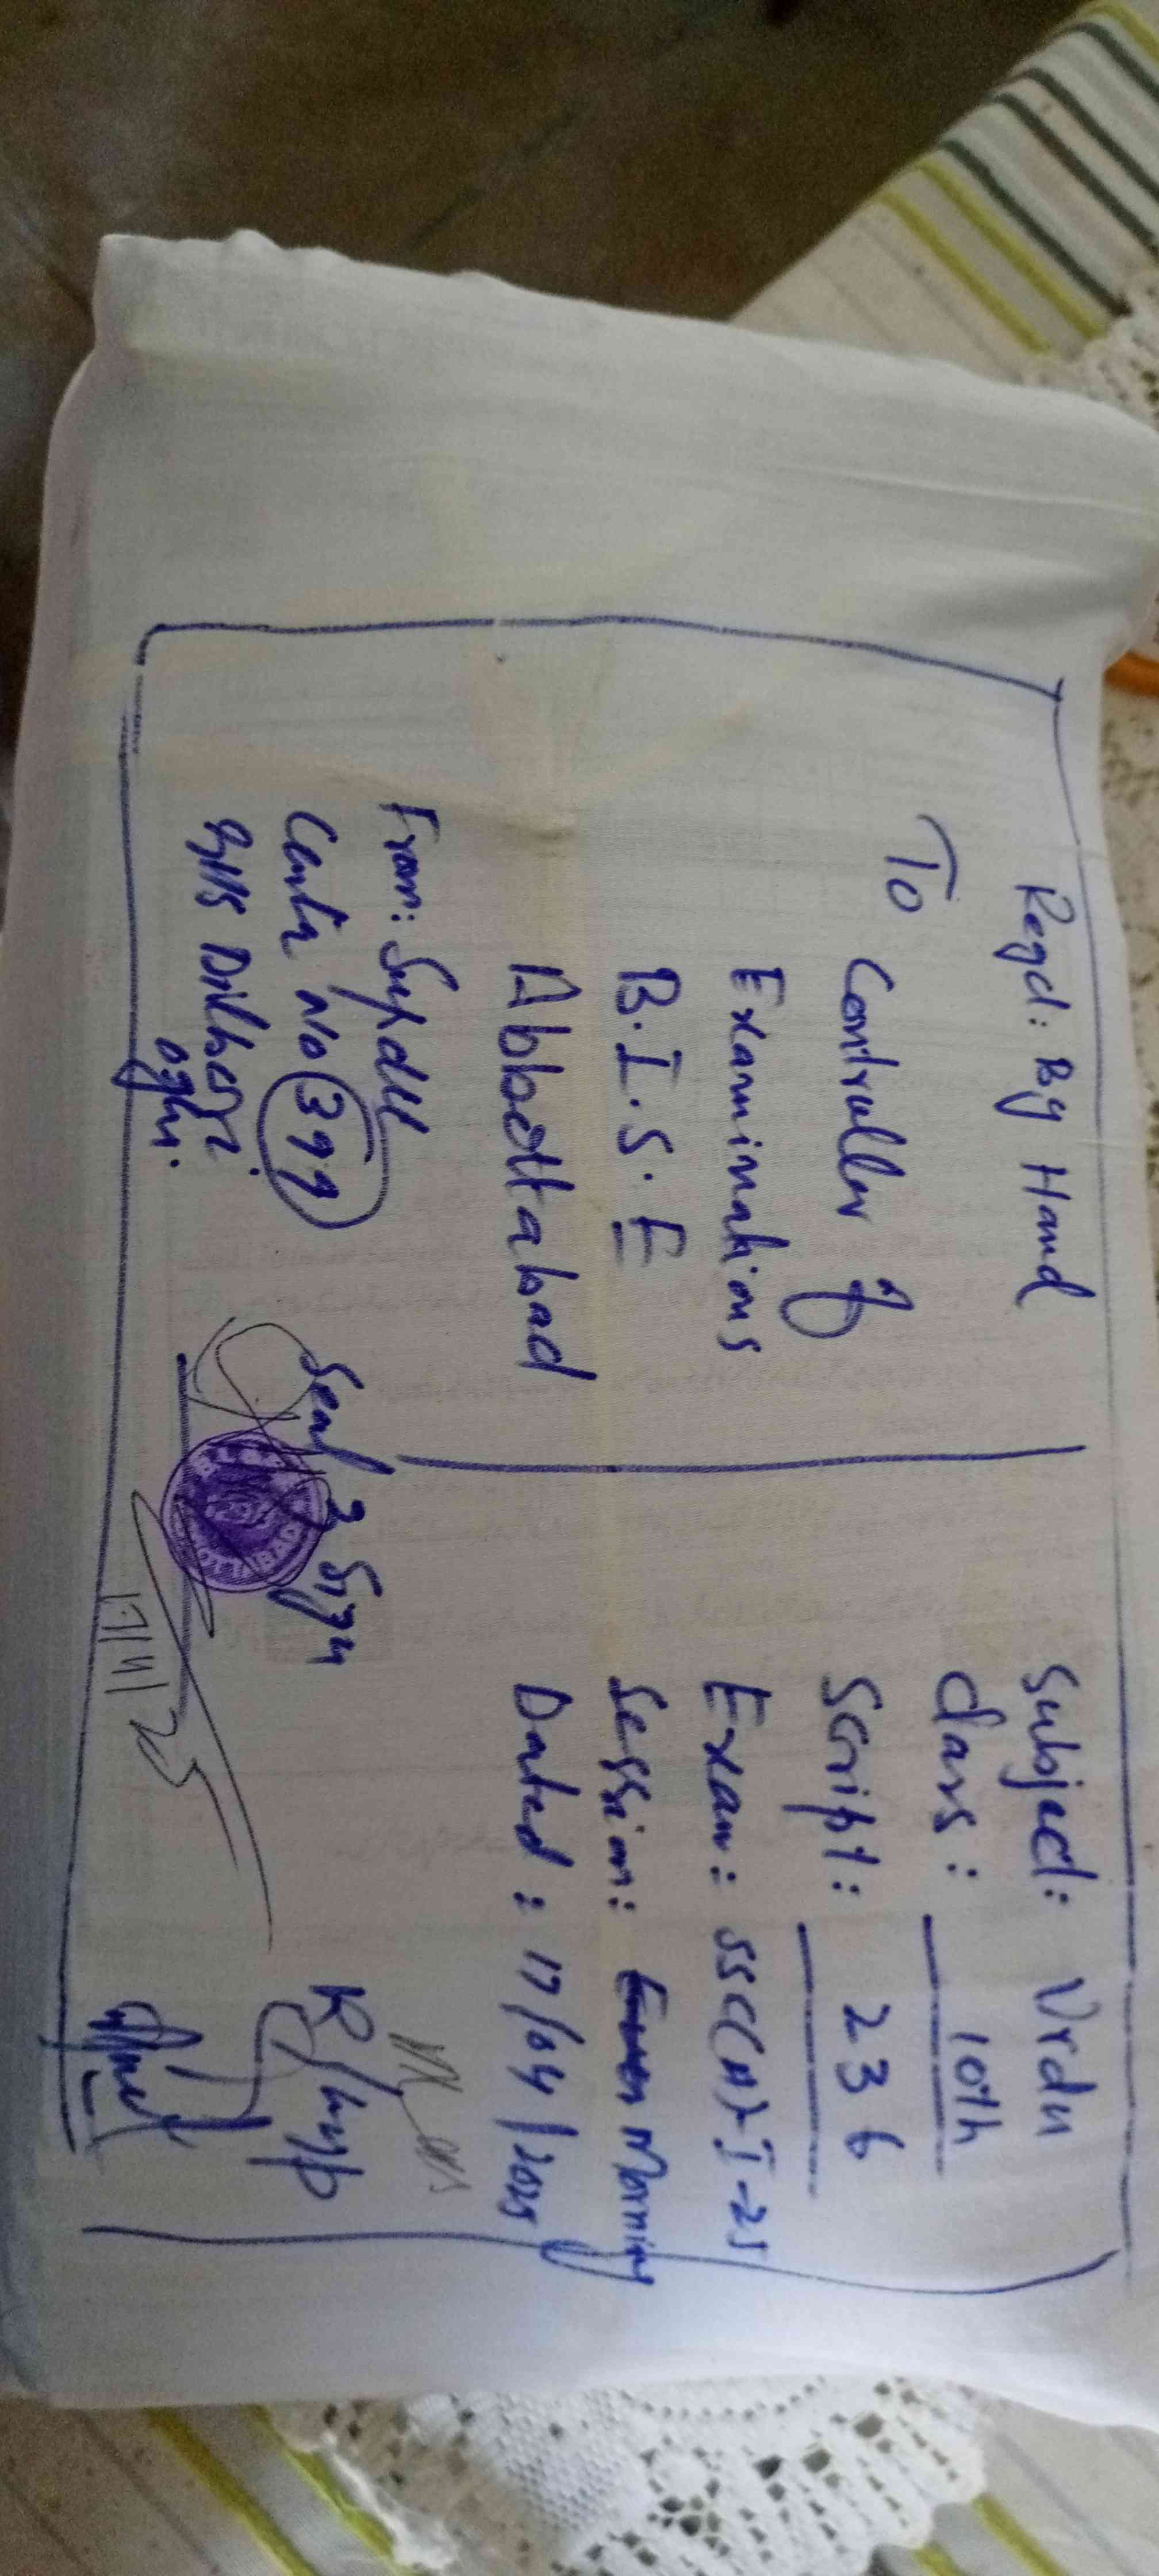 Regd: By Hand
To
Controller of
Examinations
B.I.S.E
Abbottabad
From: Supdtt
Center No 399
GHS Dilbori
Oghi.
Seal & Sign
17/4/25
Subject: Urdu
Class: 10th
Script: 236
Exam: SSC(A)-I-25
Session: Morning
Dated: 17/04/2025